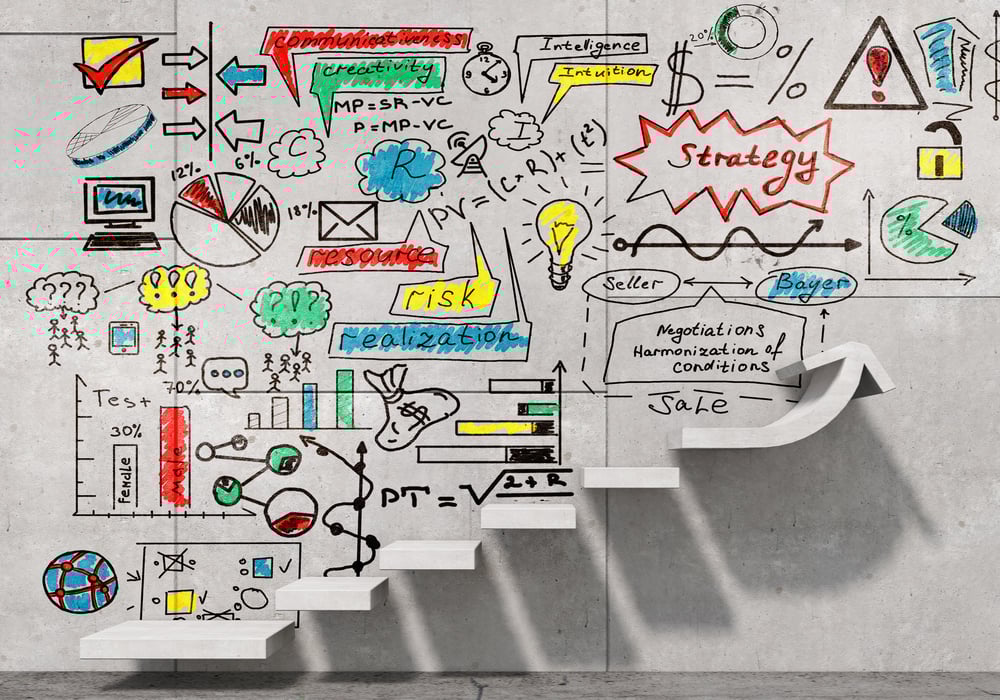 communicativness
creativity
Intelligence
Intuition
12
3
6
9
20%
$ = %
!
MP=SR-VC
P=MP-VC
C
R
I
PV=(C+R)+(t²)
=
Strategy
6%
12%
18%
resource
risk
realization
%
Seller
Bayer
Negotiations
Harmonization of
conditions
Sale
???
!!!
?!?
...
Test
70%
30%
Female
Male
$
PT = √2+R